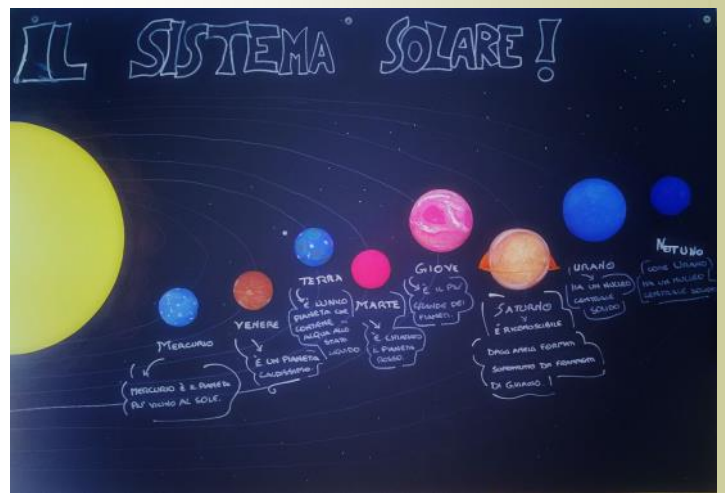 IL SISTEMA SOLARE!
MERCURIO
MERCURIO È IL PIANETA
PIU' VICINO AL SOLE.
VENERE
È UN PIANETA
CALDISSIMO.
TERRA
È L'UNICO
PIANETA CHE
CONTIENE
ACQUA ALLO
STATO
LIQUIDO.
MARTE
È CHIAMATO
IL PIANETA
ROSSO.
GIOVE
È IL PIÙ
GRANDE DEI
PIANETI.
SATURNO
È RICONOSCIBILE
DAGLI ANELLI FORMATI
DA FRAMMENTI
DI GHIACCIO!
URANO
HA UN NUCLEO
CENTRALE
SOLIDO
NETTUNO
COME URANO
HA UN NUCLEO
CENTRALE SOLIDO